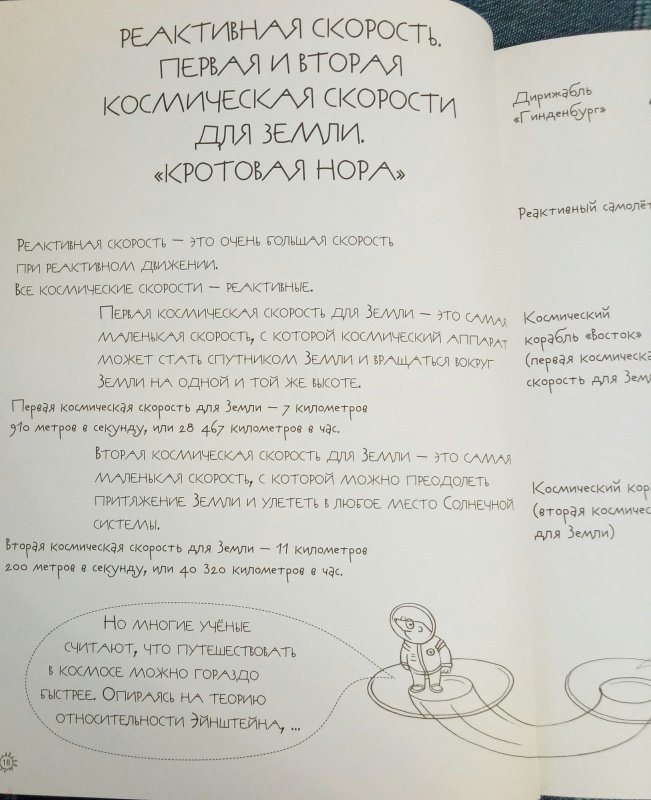 РЕАКТИВНАЯ СКОРОСТЬ.
ПЕРВАЯ И ВТОРАЯ
КОСМИЧЕСКАЯ СКОРОСТИ
ДЛЯ ЗЕМЛИ.
«КРОТОВАЯ НОРА»
РЕАКТИВНАЯ СКОРОСТЬ — ЭТО ОЧЕНЬ БОЛЬШАЯ СКОРОСТЬ
ПРИ РЕАКТИВНОМ ДВИЖЕНИИ.
ВСЕ КОСМИЧЕСКИЕ СКОРОСТИ — РЕАКТИВНЫЕ.
ПЕРВАЯ КОСМИЧЕСКАЯ СКОРОСТЬ ДЛЯ ЗЕМЛИ — ЭТО САМАЯ
МАЛЕНЬКАЯ СКОРОСТЬ, С КОТОРОЙ КОСМИЧЕСКИЙ АППАРАТ
МОЖЕТ СТАТЬ СПУТНИКОМ ЗЕМЛИ И ВРАЩАТЬСЯ ВОКРУГ
ЗЕМЛИ НА ОДНОЙ И ТОЙ ЖЕ ВЫСОТЕ.
Первая космическая скорость для Земли — 7 километров
910 метров в секунду, или 28 467 километров в час.
ВТОРАЯ КОСМИЧЕСКАЯ СКОРОСТЬ ДЛЯ ЗЕМЛИ — ЭТО САМАЯ
МАЛЕНЬКАЯ СКОРОСТЬ, С КОТОРОЙ МОЖНО ПРЕОДОЛЕТЬ
ПРИТЯЖЕНИЕ ЗЕМЛИ И УЛЕТЕТЬ В ЛЮБОЕ МЕСТО СОЛНЕЧНОЙ
СИСТЕМЫ.
Вторая космическая скорость для Земли — 11 километров
200 метров в секунду, или 40 320 километров в час.
НО МНОГИЕ УЧЁНЫЕ
СЧИТАЮТ, ЧТО ПУТЕШЕСТВОВАТЬ
В КОСМОСЕ МОЖНО ГОРАЗДО
БЫСТРЕЕ. ОПИРАЯСЬ НА ТЕОРИЮ
ОТНОСИТЕЛЬНОСТИ ЭЙНШТЕЙНА, ...
18
Дирижабль
«Гинденбург»
Реактивный самолёт
Космический
корабль «Восток»
(первая космическа
скорость для Зем
Космический кор
(вторая космичес
для Земли)